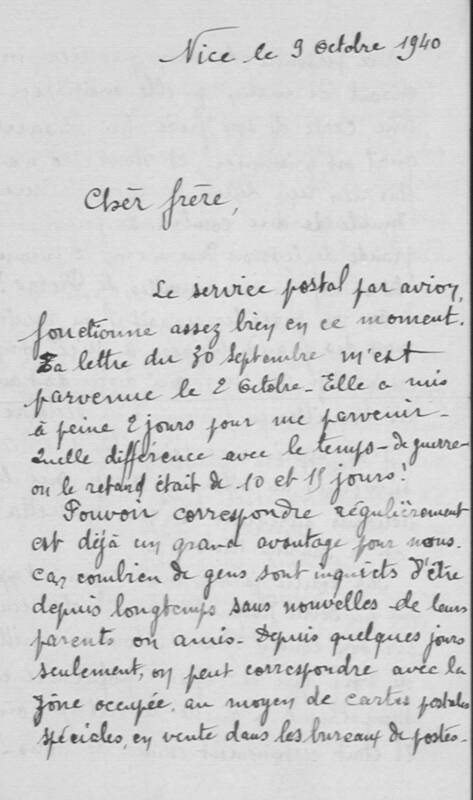 Nice le 9 Octobre 1940
Cher frère,
Le service postal par avion,
fonctionne assez bien en ce moment.
Ta lettre du 30 Septembre m'est
parvenue le 2 Octobre - Elle a mis
à peine 2 jours pour me parvenir -
Quelle différence avec le temps - de guerre -
ou le retard était de 10 et 15 jours!
Pouvoir correspondre régulièrement
est déjà un grand avantage pour nous.
Car combien de gens sont inquiets d'être
depuis longtemps sans nouvelles - de leurs
parents ou amis - Depuis quelques jours
seulement, on peut correspondre avec la
zône occupée, au moyen de cartes postales
spéciales, en vente dans les bureaux de postes -